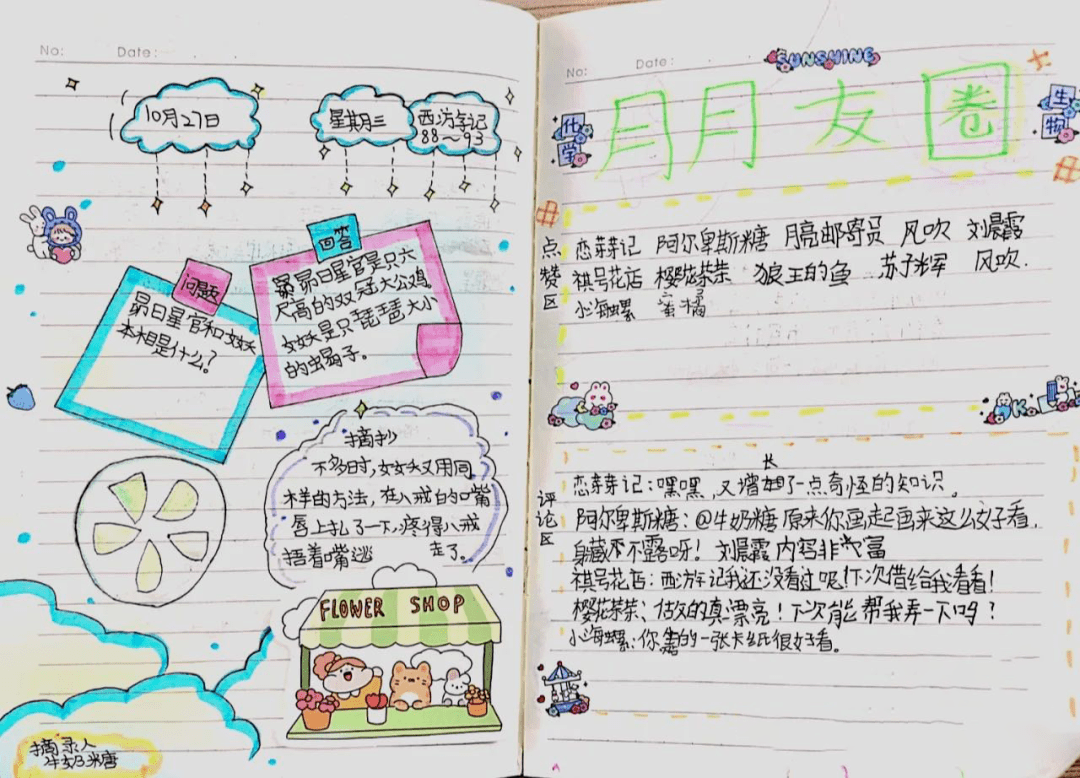 No:
Date:
10月27日
星期三
西游记
88~93
问题
昴日星官和女妖
本相是什么?
回答
昴日星官是只六
尺高的双冠大公鸡。
女妖是只琵琶大小
的蝎子。
摘抄
不多时,女妖又用同
样的方法,在八戒的嘴
唇上扎了一下,疼得八戒
捂着嘴逃走了。
FLOWER SHOP
摘录人
牛奶糖
No:
Date:
SUNSHINE
化学
生物
月月友圈
点赞区
恋芽芽记 阿尔卑斯糖 月亮邮寄员 风吹 刘晨霞
祺号花店 樱花茶茶 狼王的鱼 苏予辉 风吹.
小海螺 蜜橘
评论区
恋芽芽记:嘿嘿,又增长了一点奇怪的知识。
阿尔卑斯糖:@牛奶糖 原来你画起画来这么好看.
身藏不露呀! 刘晨霞 内容非常丰富
祺号花店:西游记我还没看过呢!下次借给我看看!
樱花茶茶、做的真漂亮!下次能帮我弄一下吗?
小海螺:你画的一张卡纸很好看。